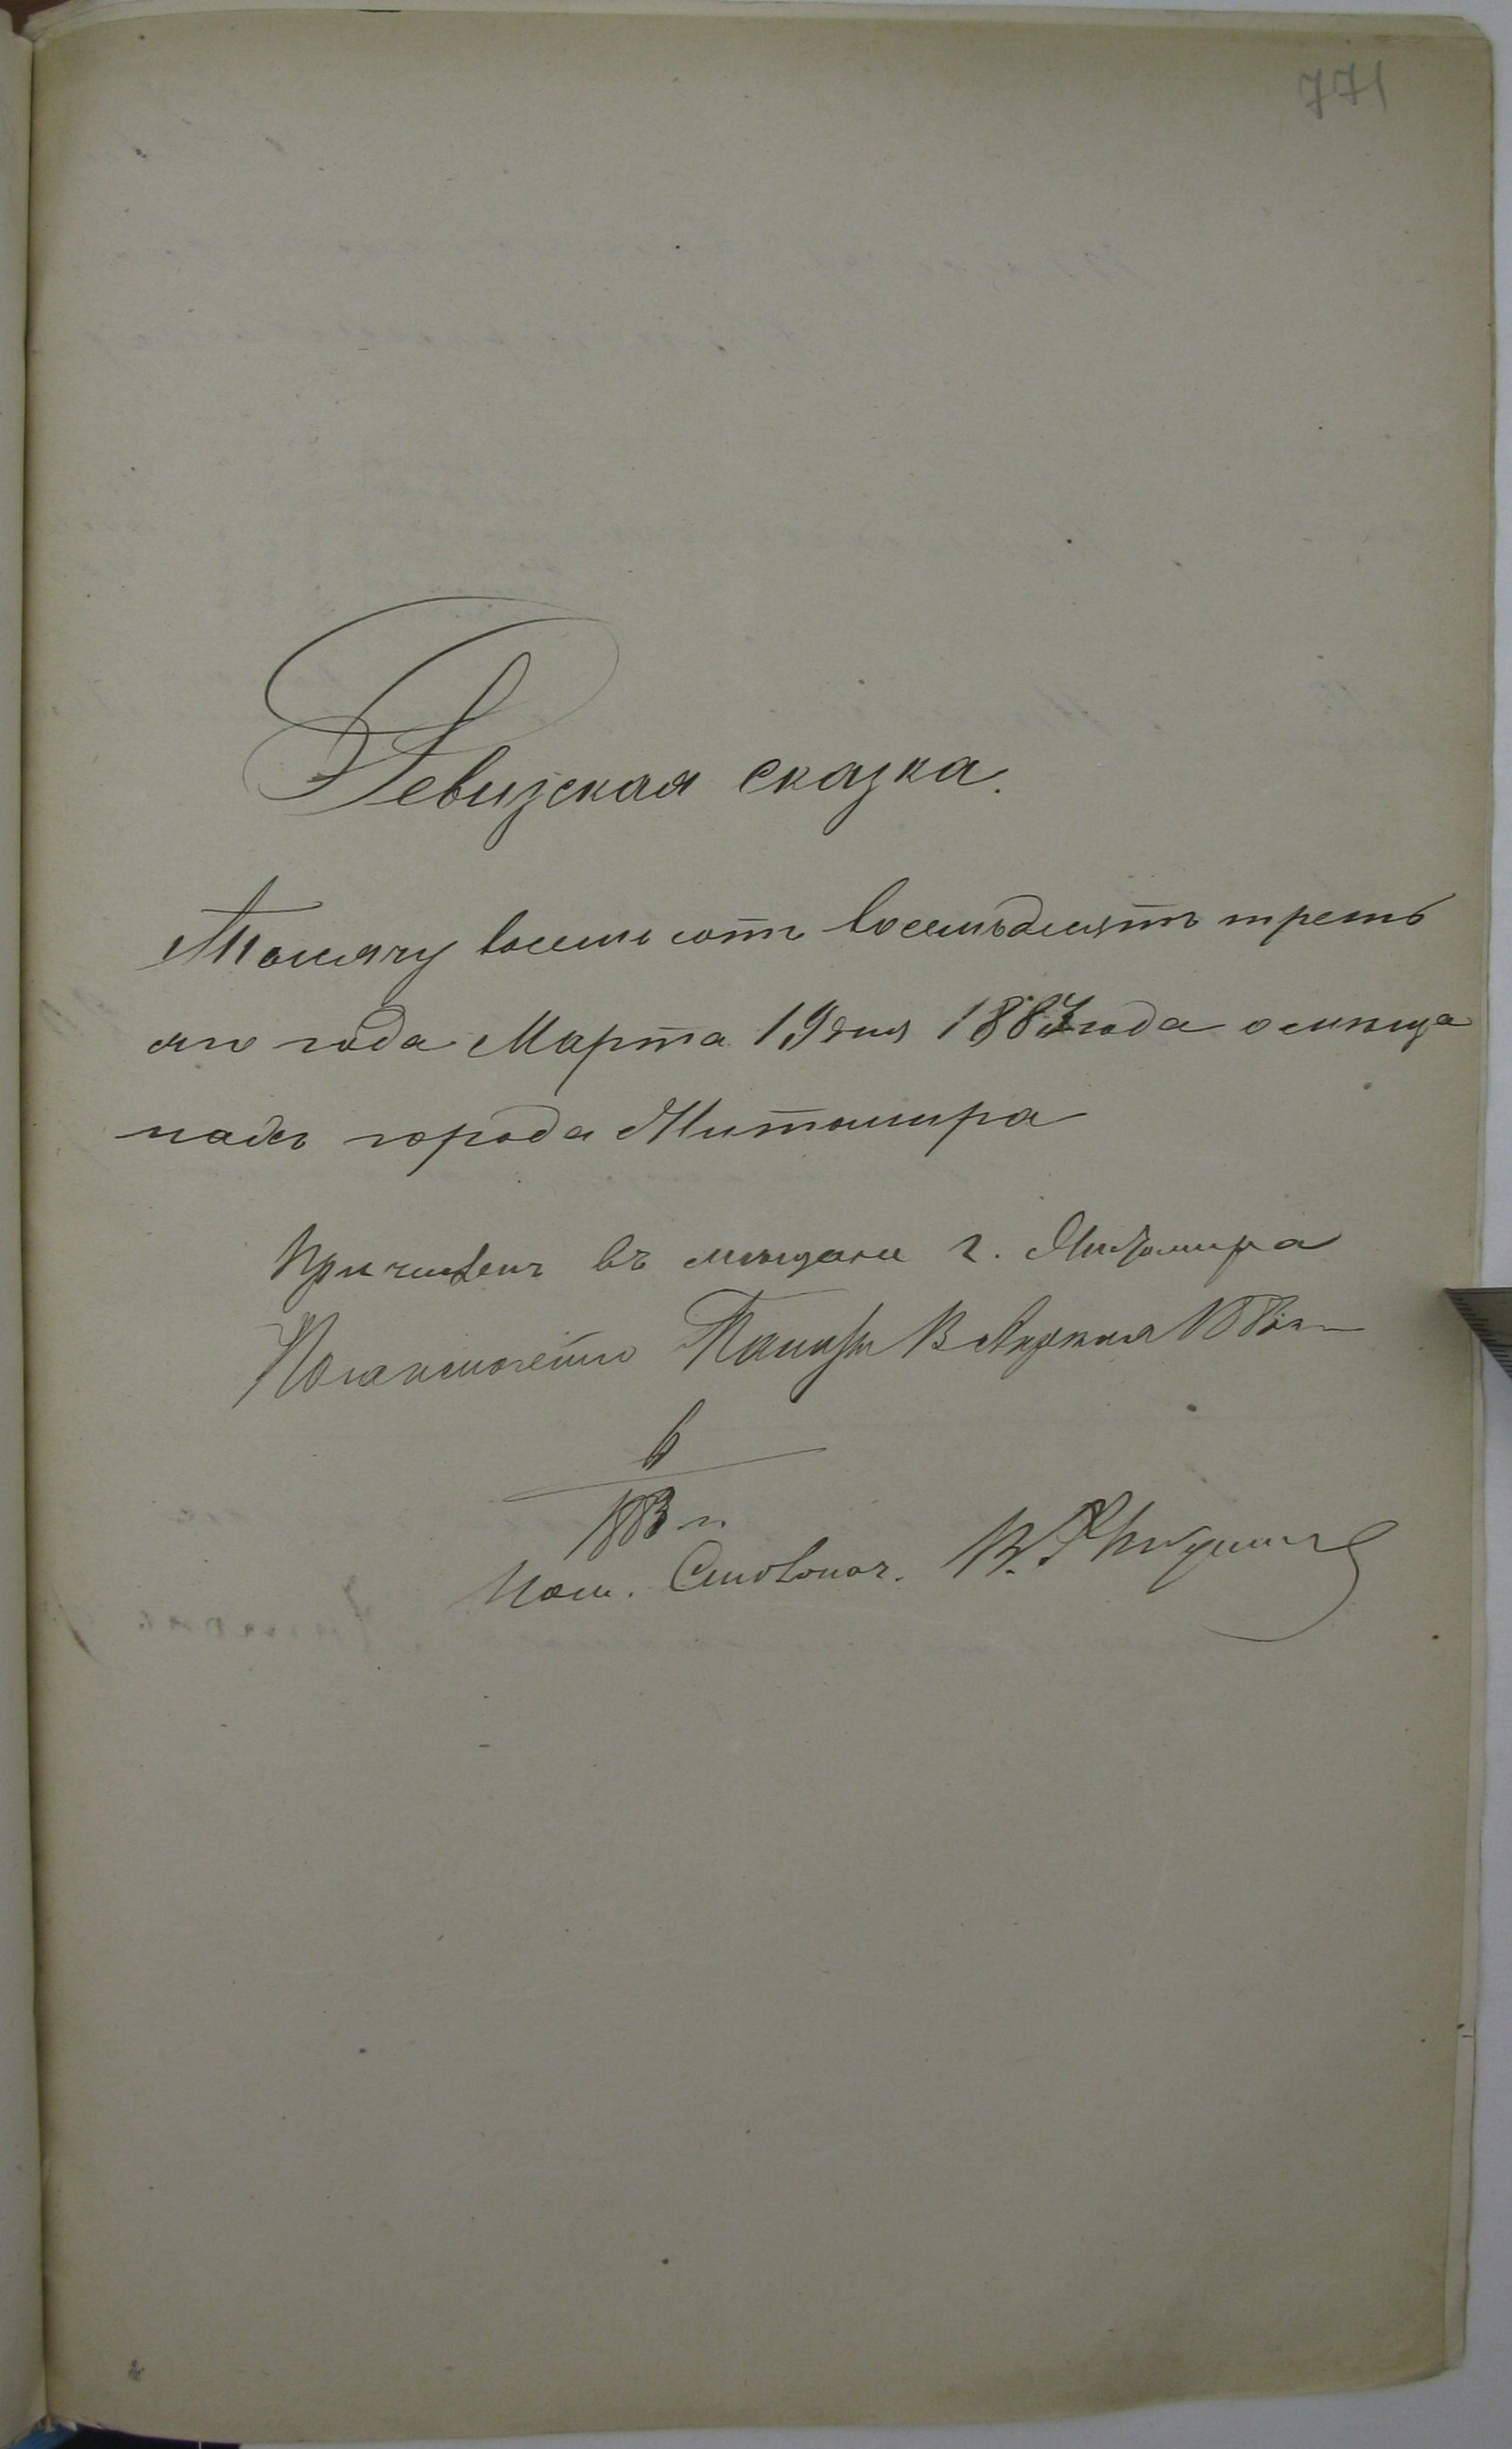 771
Ревизская сказка.
Тысячу восемь сотъ восемьдесятъ треть
яго года Марта 19 дня 1883 года о мѣща
надъ города Житомира
Причисленъ въ мѣщане г. Житомира
Палаты
1883 г.
Пом. Столонач.